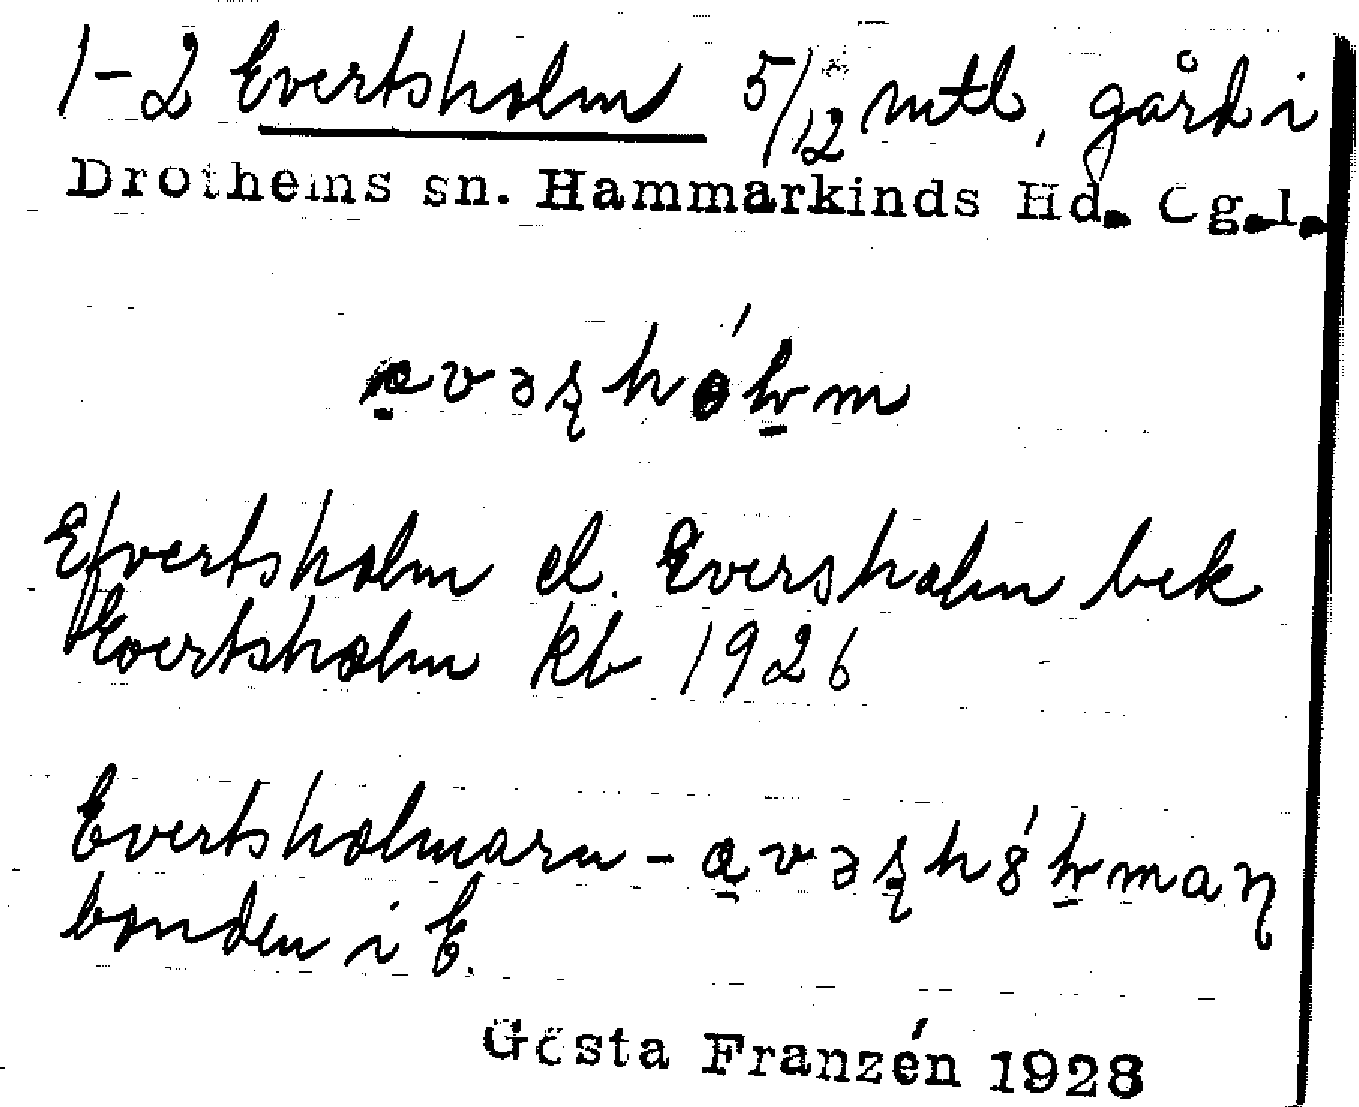 1-2 Evertsholm 5/12 mtl, gård i
Drothems sn. Hammarkinds Hd. Ög.l.
Efvertsholm el. Eversholm bek
Evertsholm kb 1926
Evertsholmarn -
bonden i E.
Gösta Franzén 1928